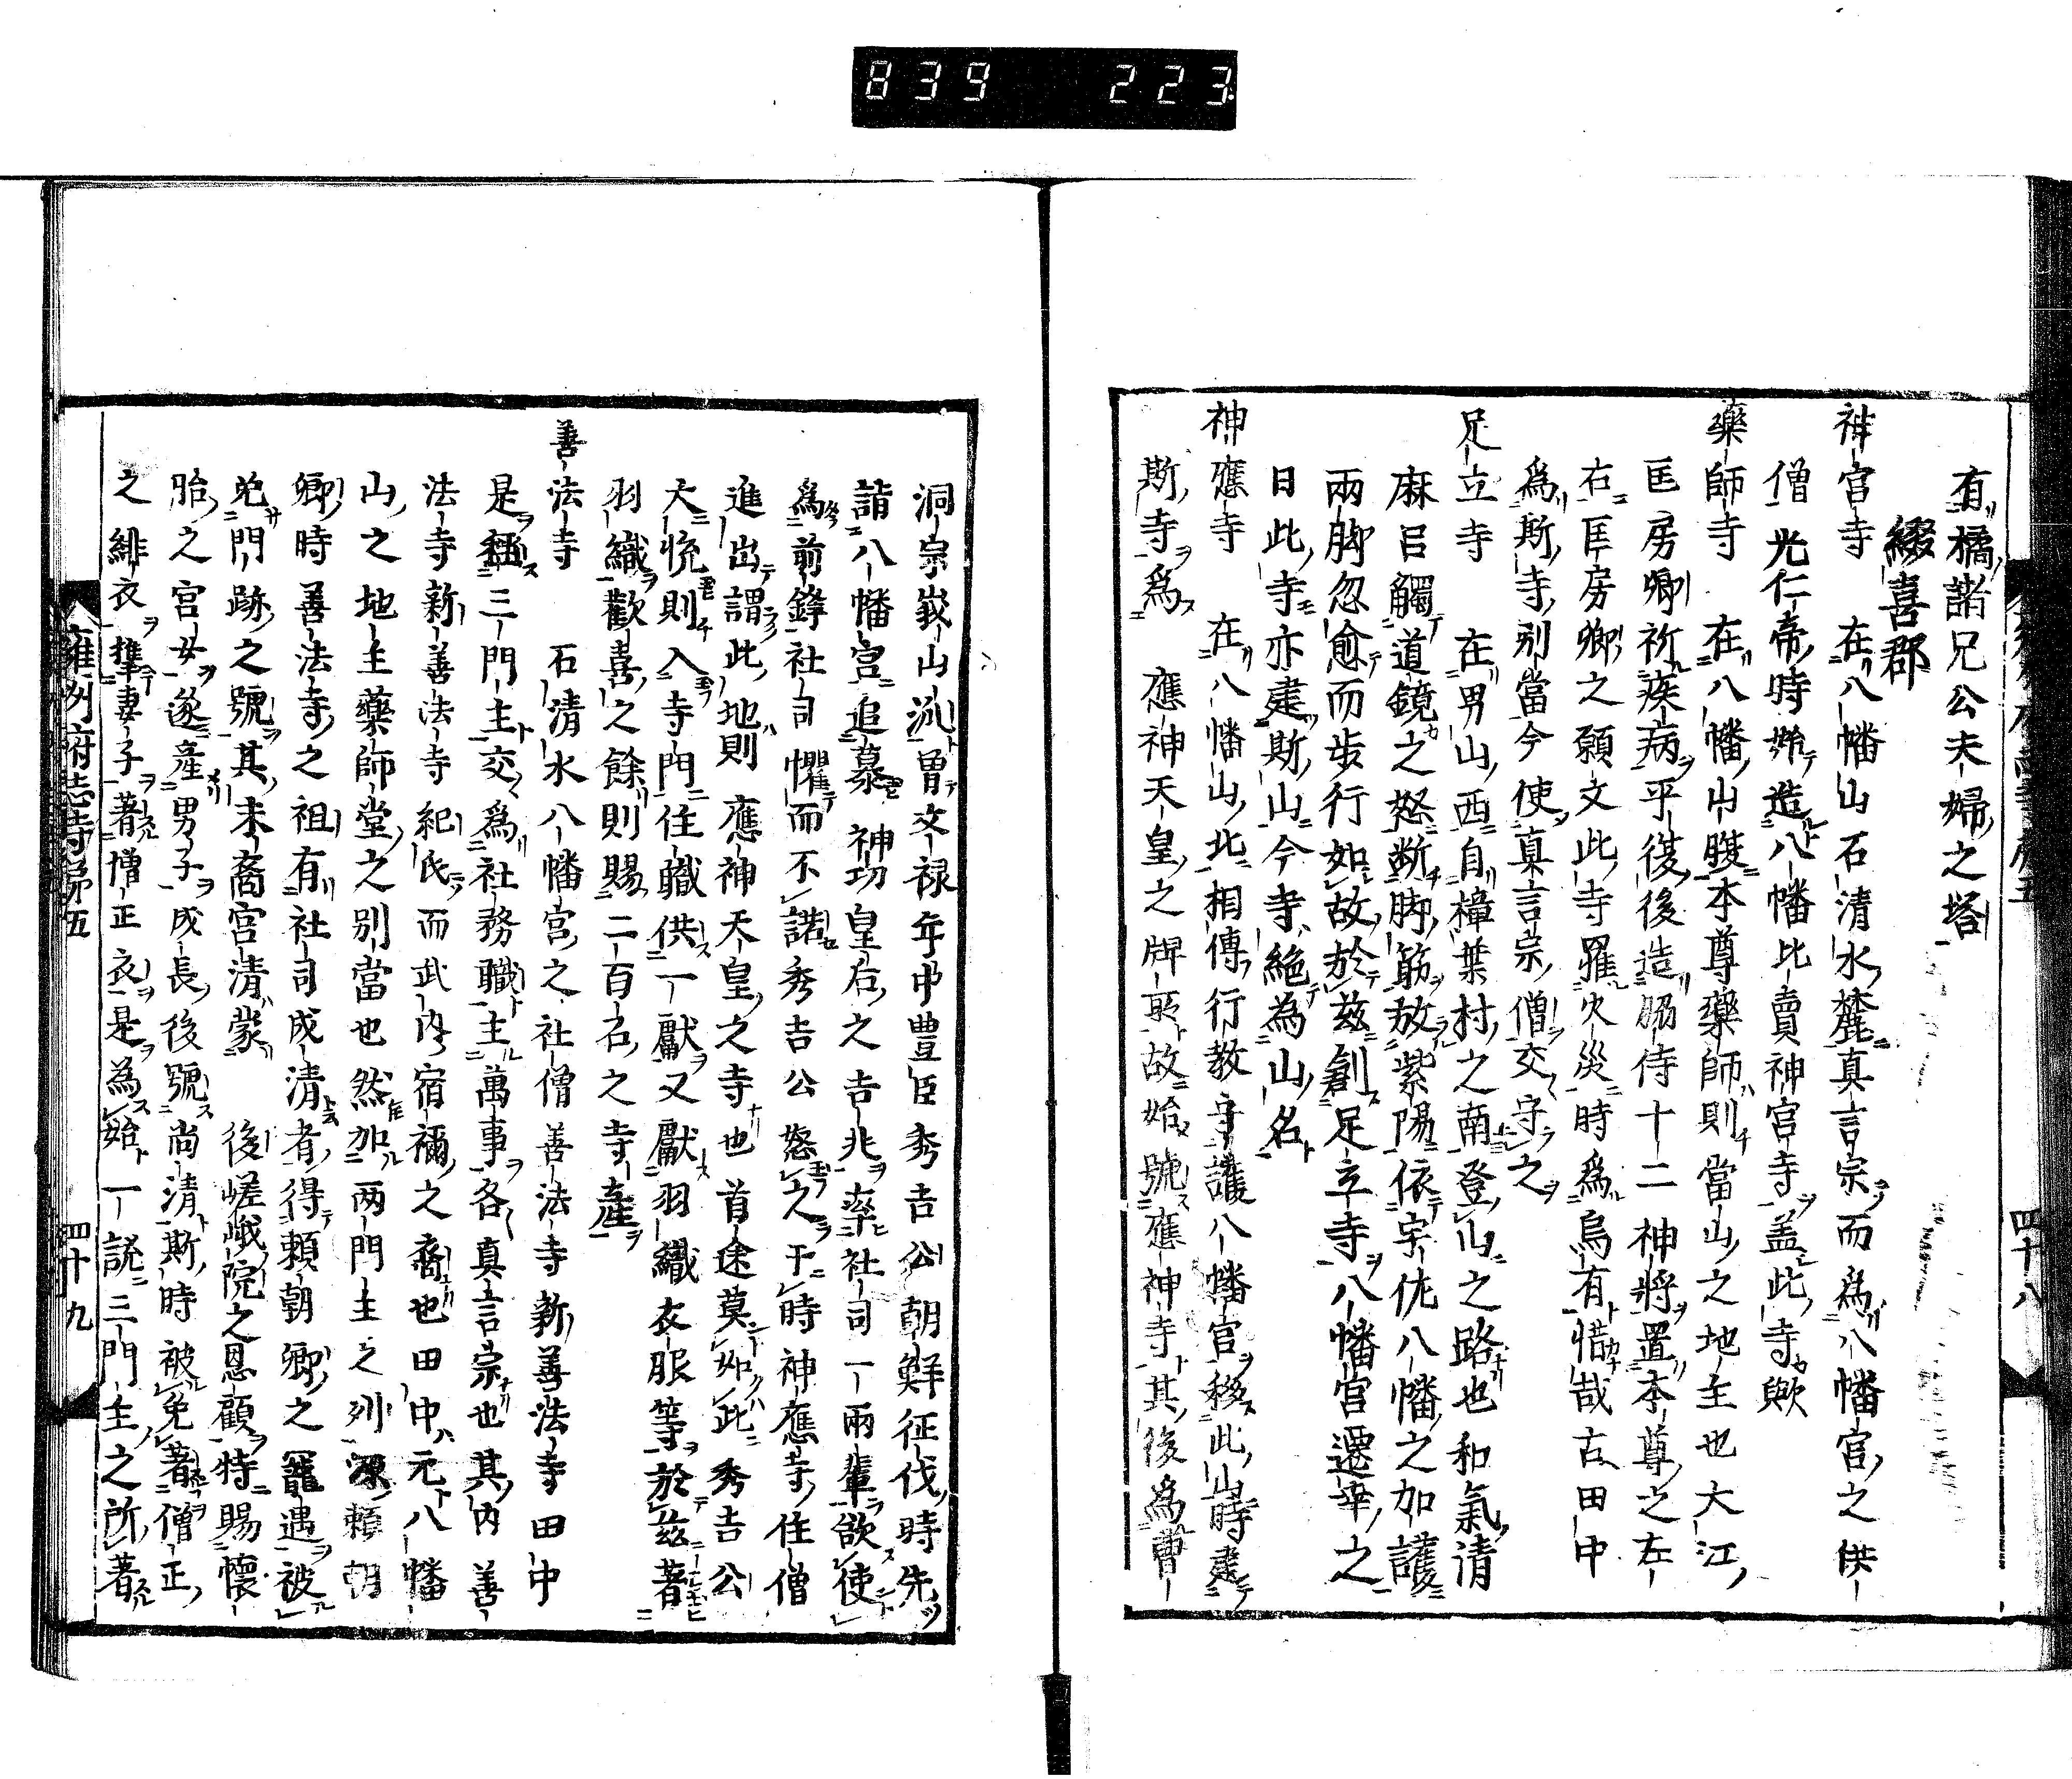 839 223
有橘諸兄公夫婦之塔
綴喜郡
神宮寺 在八幡山石清水麓真言宗而爲八幡宮之供
僧光仁帝時始造八幡比賣神宮寺盖此寺歟
藥師寺 在八幡山腹本尊藥師則當山之地主也大江
匡房卿祈疾病平復後造脇侍十二神將置本尊之左
右匡房卿之願文此寺羅火災時爲烏有惜哉古田中
爲斯寺別當今使真言宗僧交守之
足立寺 在男山西自樟葉村之南登山之路也和氣清
麻呂觸道鏡之怒断脚筋放紫陽依宇佐八幡之加護
兩脚忽愈而歩行如故於兹創足立寺八幡宮遷幸之
日此寺亦建斯山今寺絶為山名
神應寺 在八幡山北相傳行教守護八幡宮移此山時建
斯寺爲 應神天皇之牌所故始號應神寺其後爲曹
四十八
洞宗嶽山派曽文禄年中豊臣秀吉公朝鮮征伐時先
詣八幡宮追慕 神功皇后之吉兆率社司一兩輩欲使
爲前鋒社司懼而不諾秀吉公怒之于時神應寺住僧
進出謂此地則 應神天皇之寺也首途莫如此秀吉公
大悦則入寺門住職供一獻又獻羽織衣服等於兹著
羽織歡喜之餘則賜二百石之寺産
善法寺 石清水八幡宮之社僧善法寺新善法寺田中
是稱三門主交爲社務職主萬事各真言宗也其内善
法寺新善法寺紀氏而武内宿禰之裔也田中元八幡
山之地主藥師堂之別當也然加兩門主之列源頼朝
卿時善法寺之祖有社司成清者得頼朝卿之寵遇被
免門跡之號其末裔宮清蒙 後嵯峨院之恩顧特賜懐
胎之宮女遂産男子成長後號尚清斯時被免著僧正
之緋衣隼妻子著僧正衣是為始一說三門主之所著
雍州府志寺第五 四十九